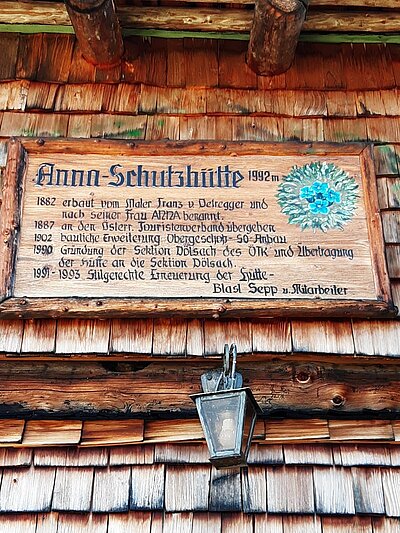 Anna-Schutzhütte 1992 m
1882 erbaut vom Maler Franz v Defregger und
nach seiner Frau ANNA benannt.
1887 an den Österr. Touristenverband übergeben
1902 bauliche Erweiterung Obergeschoß- SO-Anbau
1990 Gründung der Sektion Dölsach des ÖTK und Übertragung
der Hütte an die Sektion Dölsach.
1991-1993 Stilgerechte Erneuerung der Hütte-
Blasl Sepp u. Mitarbeiter